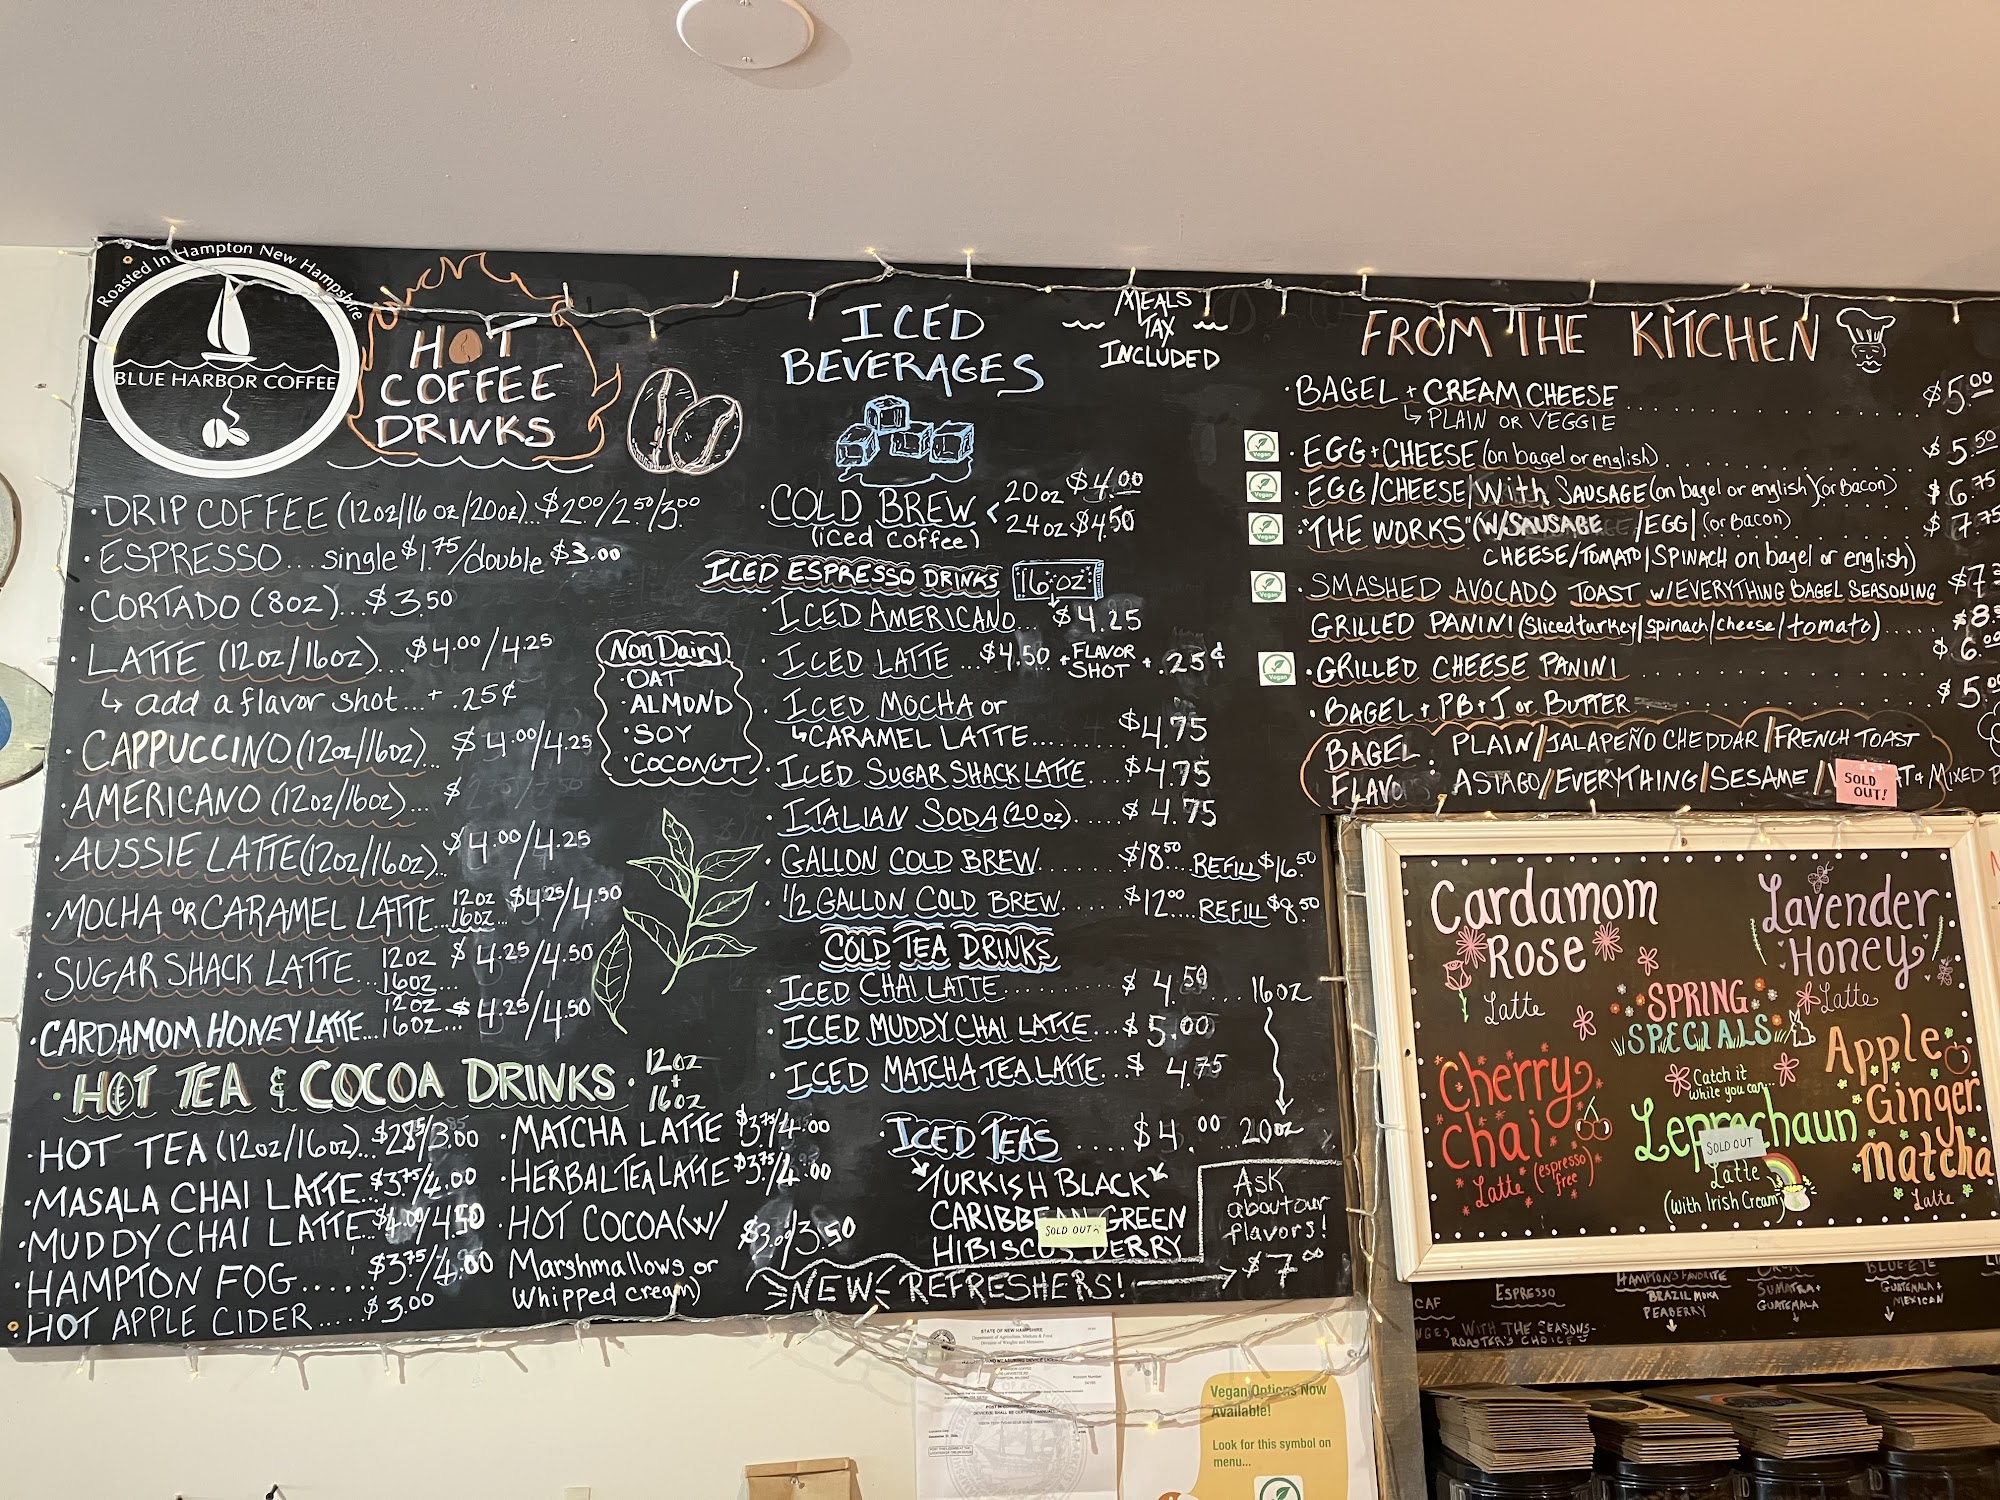 Roasted In Hampton New Hampshire
BLUE HARBOR COFFEE
HOT
COFFEE
DRINKS
· DRIP COFFEE (12oz/16oz/20oz)...$2.00/2.50/3.00
· ESPRESSO...single $1.75/double $3.00
· CORTADO (8oz)...$3.50
· LATTE (12oz/16oz)...$4.00/4.25
↳ add a flavor shot...+ .25¢
· CAPPUCCINO (12oz/16oz)...$4.00/4.25
· AMERICANO (12oz/16oz)...$
· AUSSIE LATTE (12oz/16oz)...$4.00/4.25
· MOCHA OR CARAMEL LATTE...12oz 16oz...$4.25/4.50
· SUGAR SHACK LATTE...12oz 16oz...$4.25/4.50
· CARDAMOM HONEY LATTE...12oz 16oz...$4.25/4.50
Non Dairy
· OAT
· ALMOND
· SOY
· COCONUT
· HOT TEA & COCOA DRINKS · 12oz + 16oz
· HOT TEA (12oz/16oz)...$2.85/3.00
· MASALA CHAI LATTE...$3.75/4.00
· MUDDY CHAI LATTE...$4.00/4.50
· HAMPTON FOG.....$3.75/4.00
· HOT APPLE CIDER.....$3.00
· MATCHA LATTE $3.75/4.00
· HERBAL TEA LATTE $3.75/4.00
· HOT COCOA (W/ $3.00/3.50
Marshmallows or
Whipped cream)
ICED
BEVERAGES
MEALS
TAX
INCLUDED
· COLD BREW < 20oz $4.00
(iced coffee) 24oz $4.50
ICED ESPRESSO DRINKS 16oz
· ICED AMERICANO... $4.25
· ICED LATTE ...$4.50 + FLAVOR SHOT + .25¢
· ICED MOCHA or
↳ CARAMEL LATTE....... $4.75
· ICED SUGAR SHACK LATTE... $4.75
· ITALIAN SODA (20oz)..... $4.75
· GALLON COLD BREW....... $18.50...REFILL $16.50
· 1/2 GALLON COLD BREW..... $12.00....REFILL $8.50
COLD TEA DRINKS
· ICED CHAI LATTE.......... $4.50 ... 16oz
· ICED MUDDY CHAI LATTE...$5.00
· ICED MATCHA TEA LATTE...$4.75
· ICED TEAS ...$4.00 ...20oz
TURKISH BLACK
CARIBBEAN GREEN
HIBISCUS BERRY
SOLD OUT
NEW REFRESHERS! →
ASK
about our
flavors!
$7.00
FROM THE KITCHEN
· BAGEL + CREAM CHEESE $5.00
↳ PLAIN OR VEGGIE
Vegan · EGG + CHEESE (on bagel or english) $5.50
Vegan · EGG/CHEESE/With SAUSAGE (on bagel or english) (or Bacon) $6.75
Vegan · "THE WORKS" (W/SAUSAGE /EGG/ (or Bacon) $7.75
CHEESE/TOMATO/SPINACH on bagel or english)
Vegan · SMASHED AVOCADO TOAST W/EVERYTHING BAGEL SEASONING $7
GRILLED PANINI (Sliced turkey/spinach/cheese/tomato).... $8.
Vegan · GRILLED CHEESE PANINI $6.00
· BAGEL + PB + J or BUTTER $5.
BAGEL : PLAIN/JALAPEÑO CHEDDAR/FRENCH TOAST
FLAVO ASIAGO/EVERYTHING/SESAME/ & MIXED
SOLD
OUT!
Cardamom
Rose
Latte
Lavender
Honey
Latte
SPRING
SPECIALS
Catch it
while you can...
Cherry
Chai
Latte (espresso free)
Leprechaun
SOLD OUT
Latte
(With Irish Cream)
Apple
Ginger
Matcha
Latte
CAF
ESPRESSO
HAMPTON'S FAVORITE
BRAZIL MOKA
PEABERRY
SUMATRA +
GUATEMALA
BLUE EYE
GUATEMALA +
MEXICAN
NGES WITH THE SEASONS-
ROASTER'S CHOICE
STATE OF NEW HAMPSHIRE
Department of Agriculture, Markets & Food
Division of Weights and Measures
Vegan Options Now
Available!
Look for this symbol on
menu...